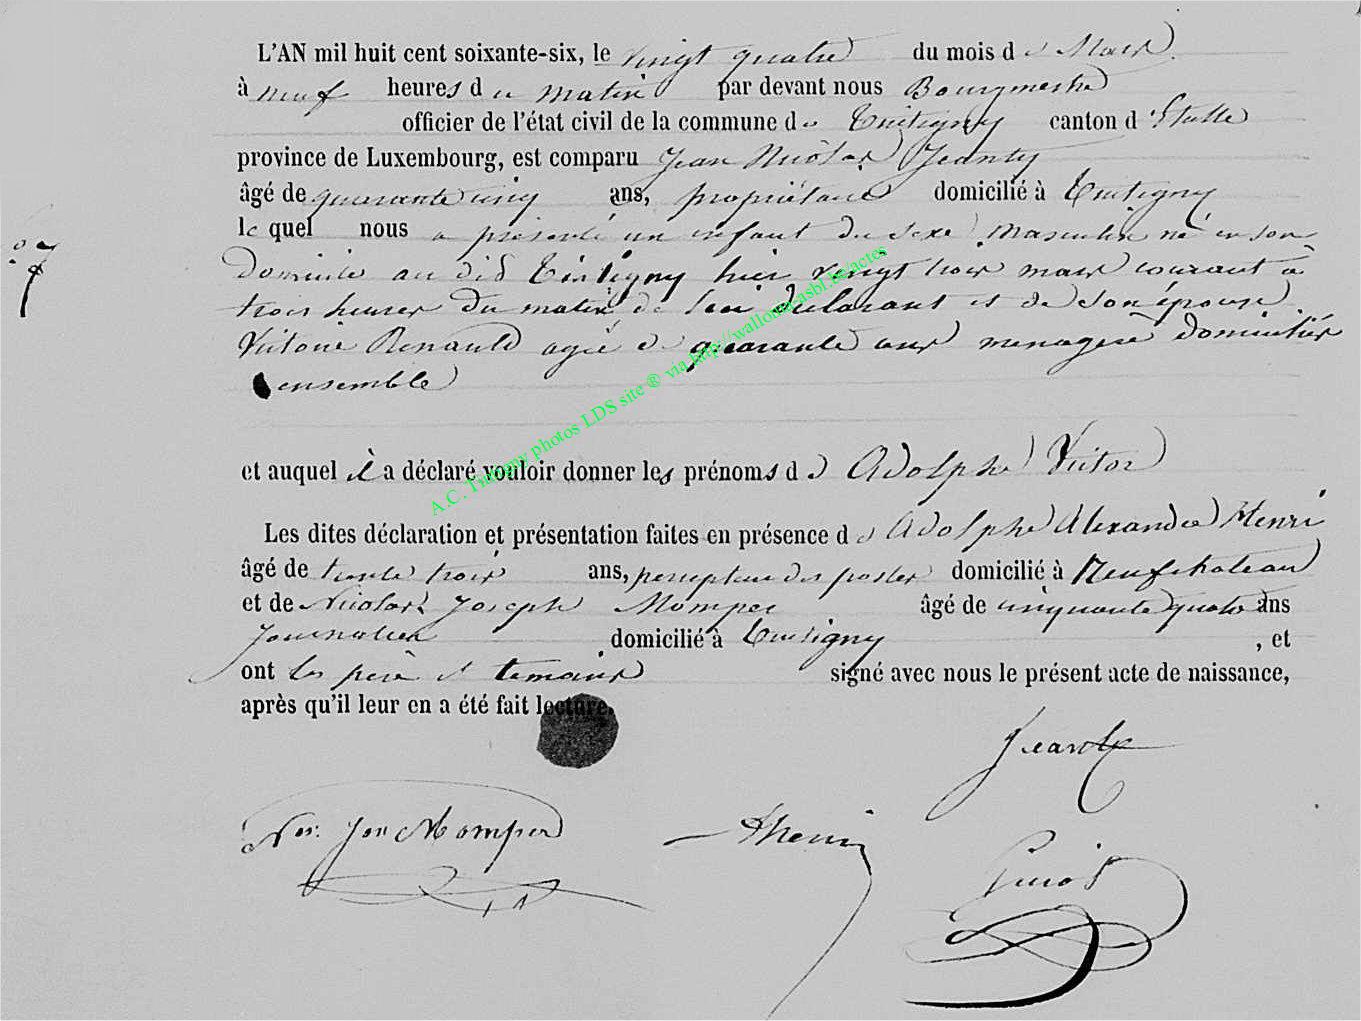 L'AN mil huit cent soixante-six, le vingt quatre du mois de Mars
à neuf heures du matin par devant nous Bourgmestre
officier de l'état civil de la commune de Tintigny canton d'Etalle
province de Luxembourg, est comparu Jean Nicolas Jeanty
âgé de quarante cinq ans, propriétaire domicilié à Tintigny
lequel nous a présenté un enfant du sexe masculin né en son
Domicile au did Tintigny hier vingt trois mars courant à
trois heures du matin de lui déclarant et de son épouse
Victoire Renauld agée de quarante ans menagère domiciliés
ensemble
et auquel il a déclaré vouloir donner les prénoms de Adolphe Victor
Les dites déclaration et présentation faites en présence de Adolphe Alexandre Henri
âgé de trente trois ans, percepteur des postes domicilié à Neufchateau
et de Nicolas Joseph Momper âgé de cinquante quatre ans
Journalier domicilié à Tintigny, et
ont les père et temoins signé avec nous le présent acte de naissance,
après qu'il leur en a été fait lecture.
Jeanty
Nas. Jos Momper
AHenri
A.C. Tintigny photos LDS site ® via http://wallonia.asbl.be/actes